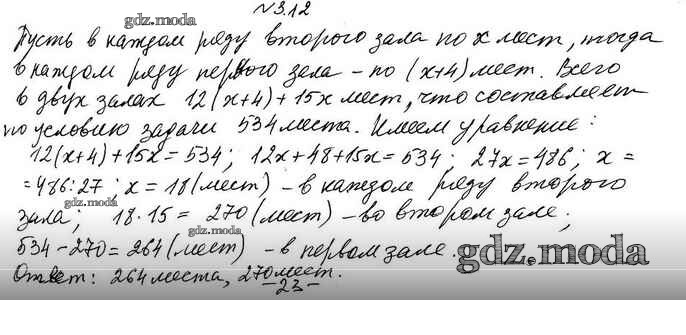 №3.12
gdz.moda
Пусть в каждом ряду второго зала по x мест, тогда
в каждом ряду первого зала – по (x+4) мест. Всего
в двух залах 12(x+4)+15x мест, что составляет
gdz.moda
по условию задачи 534 места. Имеем уравнение:
12(x+4)+15x=534; 12x+48+15x=534; 27x=486; x=
=486:27; x=18(мест) – в каждом ряду второго
зала; 18·15=270(мест) – во втором зале;
gdz.moda
534–270=264(мест) – в первом зале.
gdz.moda
Ответ: 264 места, 270 мест.
–23–